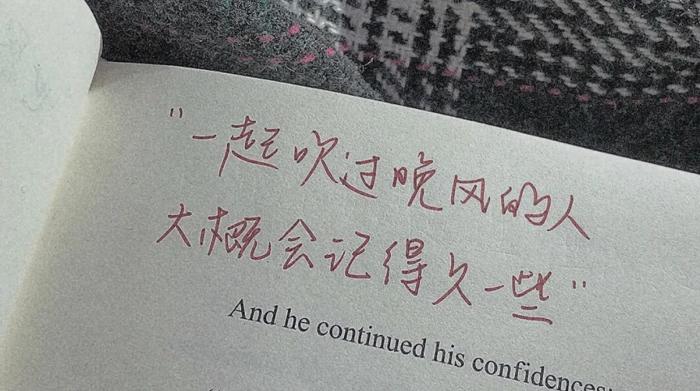 "一起吹过晚风的人
大概会记得久一些"
And he continued his confidences: